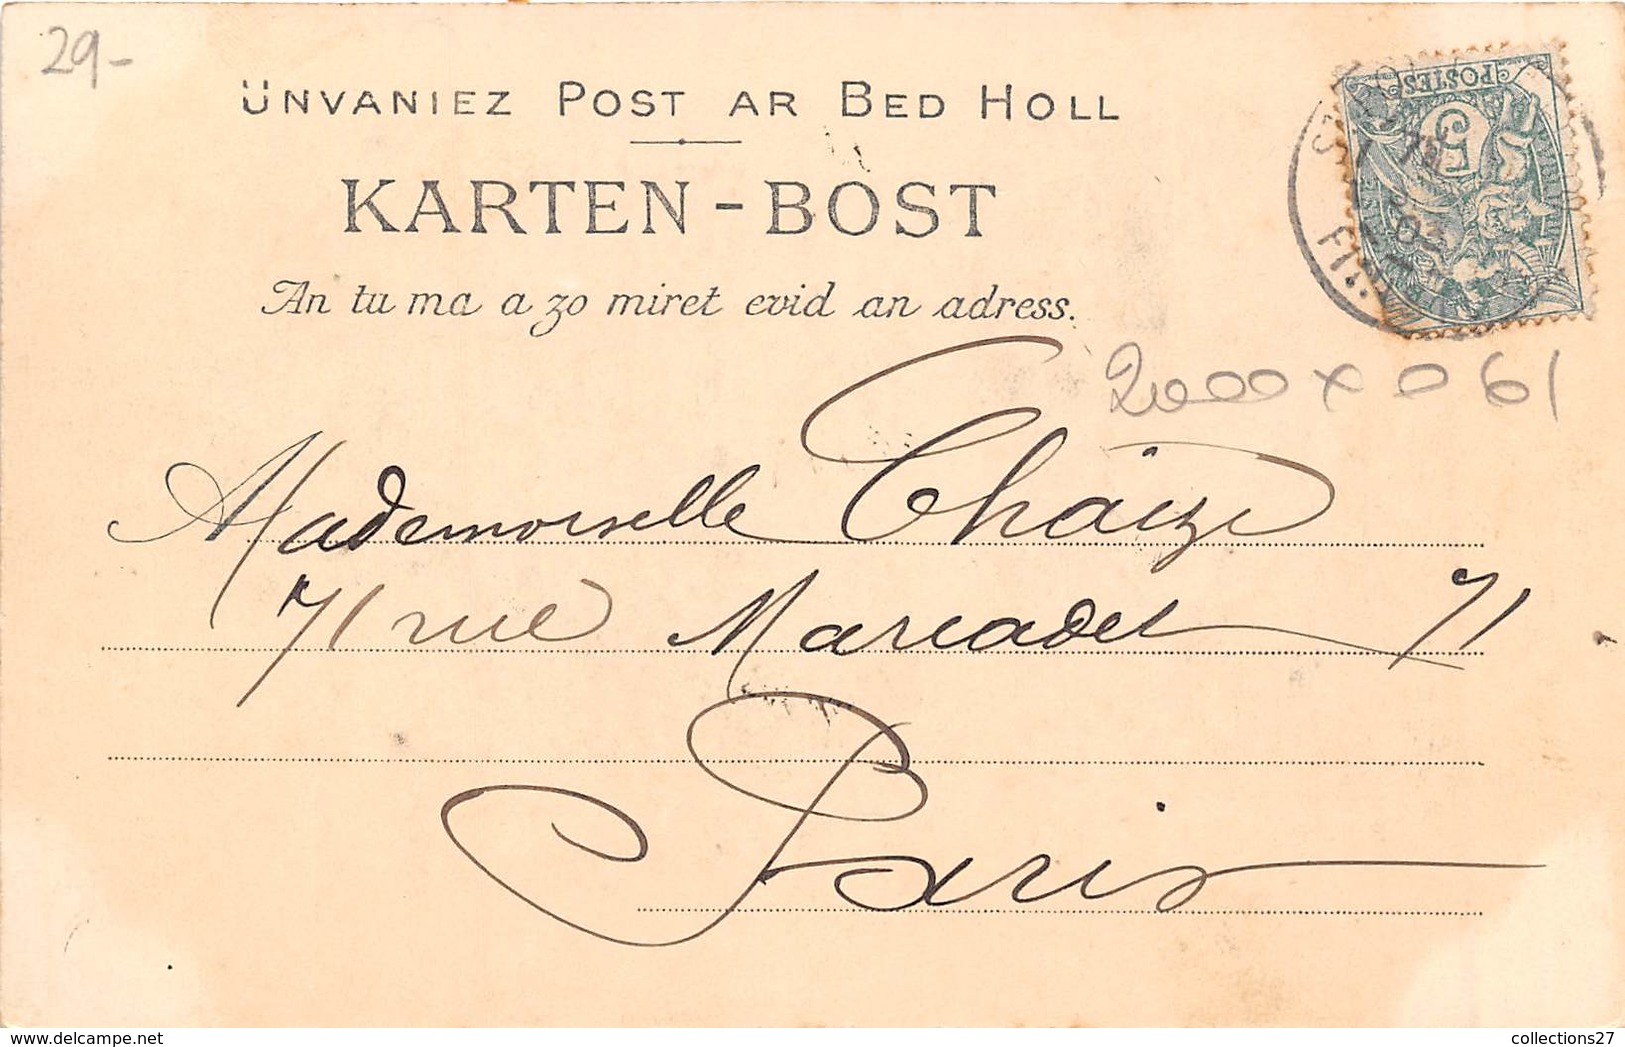 29-
ÜNVANIEZ POST AR BED HOLL
KARTEN-BOST
An tu ma a zo miret evid an adress.
POSTES
5
03
2000 x 0 61
Mademoiselle Chaize
71 rue Marcadet 71
Paris
collections27